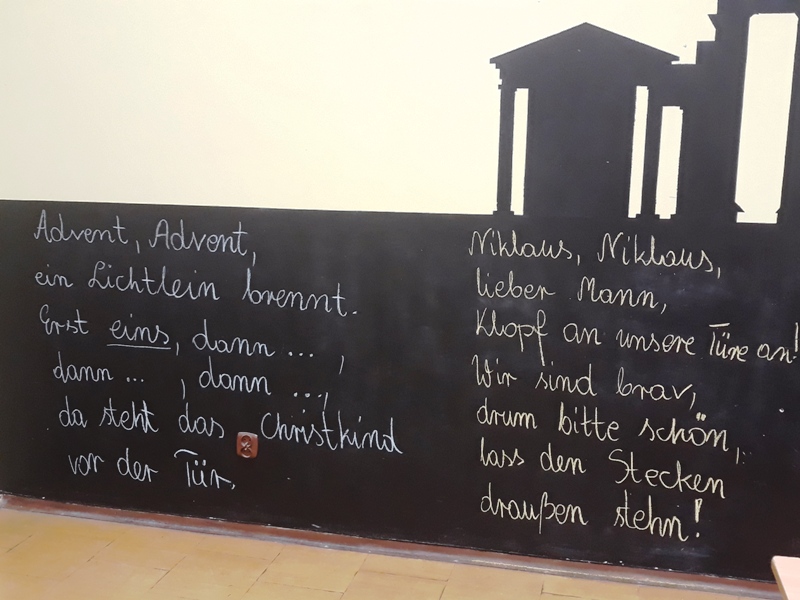 Advent, Advent,
ein Lichtlein brennt.
Erst eins, dann ... ,
dann ... , dann ...,
da steht das Christkind
vor der Tür.
Niklaus, Niklaus,
lieber Mann,
Klopf an unsere Türe an!
Wir sind brav,
drum bitte schön,
lass den Stecken
draußen stehn!